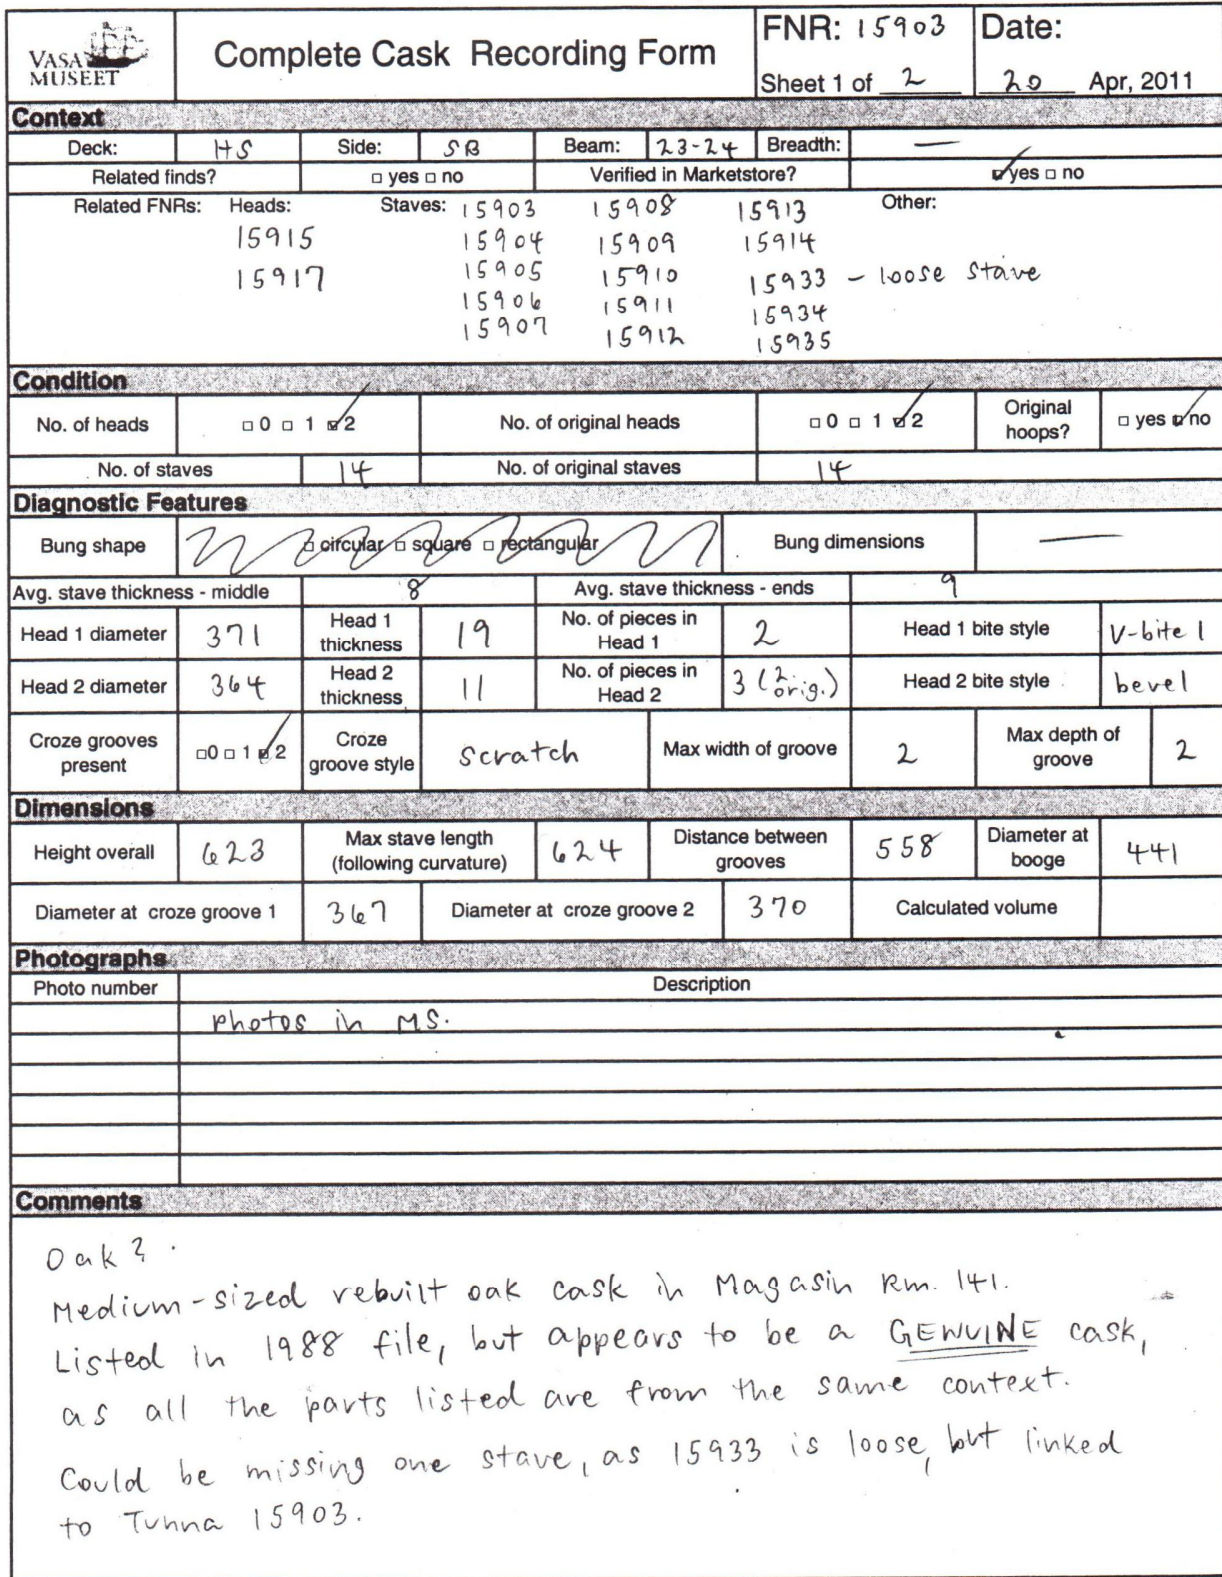 VASA MUSEET
Complete Cask Recording Form
FNR: 15903
Date:
Sheet 1 of 2
20 Apr, 2011
Context
Deck: HS Side: SB Beam: 23-24 Breadth: —
Related finds? □ yes □ no Verified in Marketstore? ☑ yes □ no
Related FNRs: Heads: Staves: 15903 15908 15913 Other:
15915 15904 15909 15914
15917 15905 15910 15933 - loose stave
15906 15911 15934
15907 15912 15935
Condition
No. of heads □ 0 □ 1 ☑ 2 No. of original heads □ 0 □ 1 ☑ 2 Original hoops? □ yes ☑ no
No. of staves 14 No. of original staves 14
Diagnostic Features
Bung shape □ circular □ square □ rectangular Bung dimensions —
Avg. stave thickness - middle 8 Avg. stave thickness - ends 9
Head 1 diameter 371 Head 1 thickness 19 No. of pieces in Head 1 2 Head 1 bite style V-bite 1
Head 2 diameter 364 Head 2 thickness 11 No. of pieces in Head 2 3 (2 orig.) Head 2 bite style bevel
Croze grooves present □ 0 □ 1 ☑ 2 Croze groove style scratch Max width of groove 2 Max depth of groove 2
Dimensions
Height overall 623 Max stave length (following curvature) 624 Distance between grooves 558 Diameter at booge 441
Diameter at croze groove 1 367 Diameter at croze groove 2 370 Calculated volume
Photographs
Photo number Description
photos in MS.
Comments
Oak?.
Medium-sized rebuilt oak cask in Magasin Rm. 141.
Listed in 1988 file, but appears to be a GENUINE cask,
as all the parts listed are from the same context.
Could be missing one stave, as 15933 is loose, but linked
to Tunna 15903.